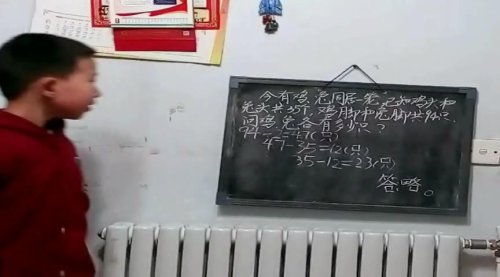 今有鸡、兔同居一笼,已知鸡头和
兔头共35个,鸡脚和兔脚共94只,
问鸡、兔各有多少只?
94÷2=47(只)
47-35=12(只)
35-12=23(只)
答略。